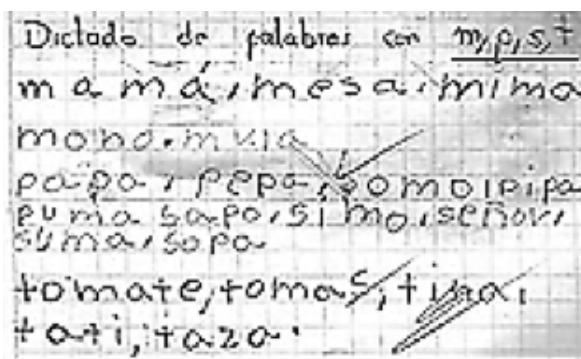 Dictado de palabras con m,p,s,t
mamá, mesa, mima
mono, mula
papa, pepa, pomo, pipa
puma sapo, simo, señor,
suma, sopa
tomate, tomas, tina,
tati, taza.